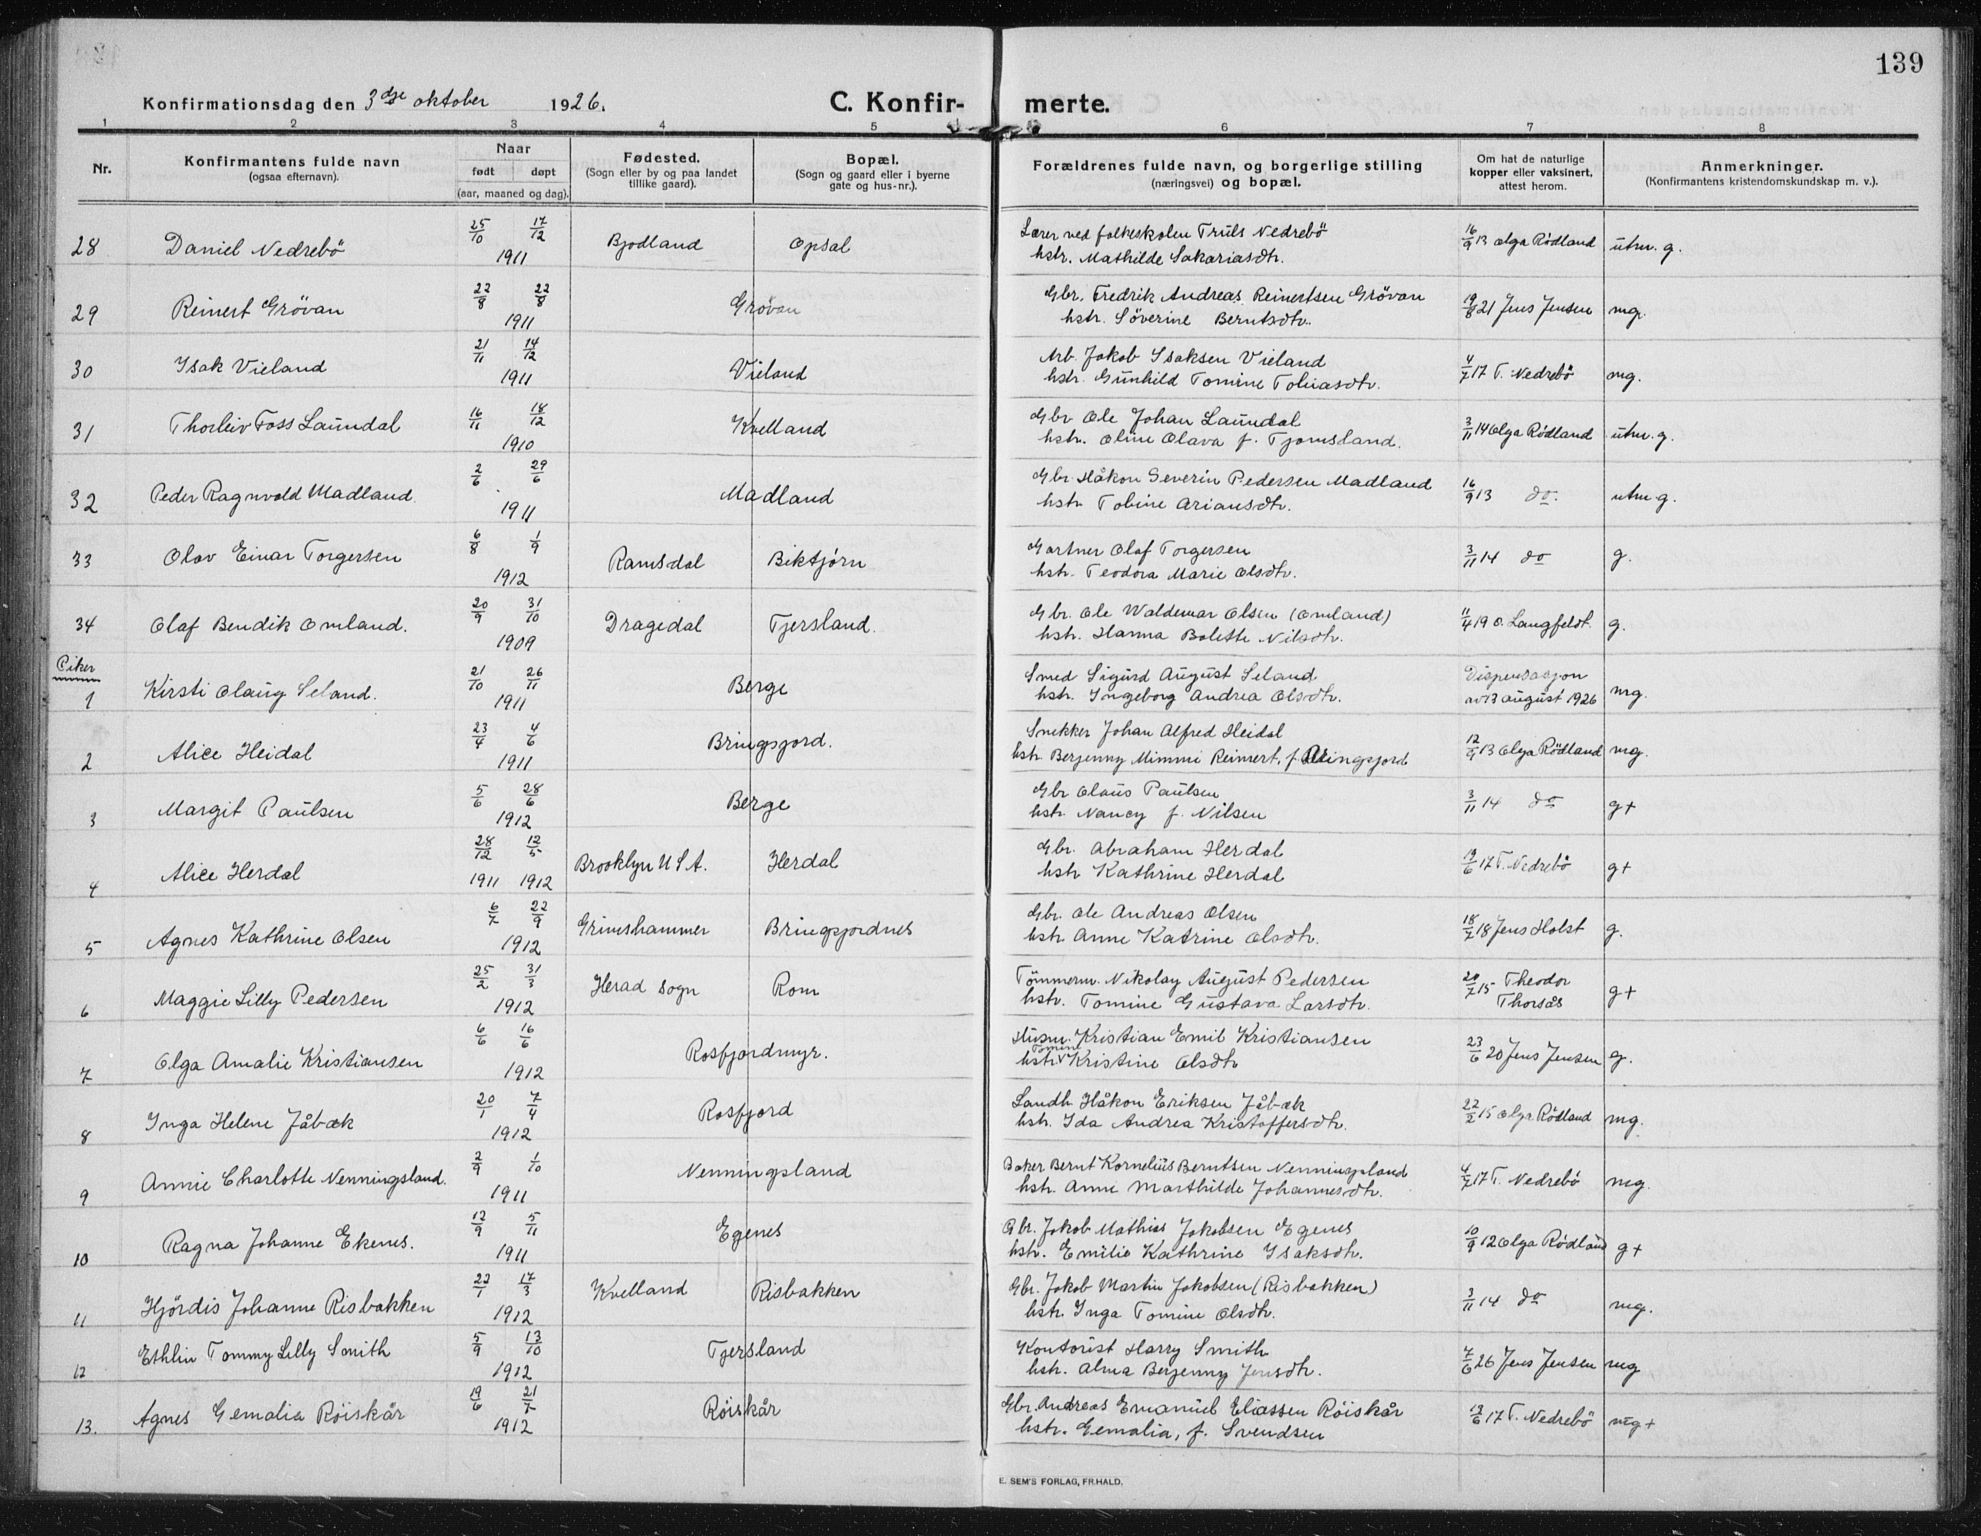 139
Konfirmationsdag den 3dje oktober 1926.
C. Konfir- merte.
1 2 3 4 5 6 7 8
Nr.
Konfirmantens fulde navn
(ogsaa efternavn).
Naar
født døpt
(aar, maaned og dag).
Fødested.
(Sogn eller by og paa landet
tillike gaard).
Bopæl.
(Sogn og gaard eller i byerne
gate og hus-nr.).
Forældrenes fulde navn, og borgerlige stilling
(næringsvei) og bopæl.
Om hat de naturlige
kopper eller vaksinert,
attest herom.
Anmerkninger.
(Konfirmantens kristendomskundskap m. v.).
28 Daniel Nedrebö 25/10 17/12 1911 Bjodland Opsal
Lærer ved folkeskolen Truls Nedrebö
hstr. Mathilde Sakariasdtr.
16/9 13 Olga Rödland utm. g.
29 Reinert Grövan 22/8 22/8 1911 Grövan
Gbr. Fredrik Andreas Reinertsen Grövan
hstr. Söverine Berntsdtr.
19/8 21 Jens Jensen mg.
30 Isak Vieland 21/11 14/12 1911 Vieland
Arb. Jakob Isaksen Vieland
hstr. Gunhild Tomine Tobiasdtr.
4/7 17 T. Nedrebö mg.
31 Thorleiv Foss Laundal 16/11 18/12 1910 Kvelland
Gbr Ole Johan Laundal
hstr. Oline Olava f. Tjomsland.
3/11 14 Olga Rödland utm. g.
32 Peder Ragnvald Madland 2/6 29/6 1911 Madland
Gbr Håkon Severin Pedersen Madland
hstr Tobine Ariansdtr.
16/9 13 do. utm g.
33 Olav Einar Torgersen 6/8 1/9 1912 Ramsdal Biktjørn
Gartner Olaf Torgersen
hstr. Teodora Marie Olsdtr.
3/11 14 do g.
34 Olaf Bendik Omland. 20/9 31/10 1909 Dragedal Tjersland.
Gbr. Ole Waldemar Olsen (Omland)
hstr. Hanna Bolette Nilsdtr.
11/4 19 O. Langfeldt. g.
Piker
1 Kirsti Olaug Seland. 21/10 26/11 1911 Berge
Smed Sigurd August Seland
hstr. Ingeborg Andrea Olsdtr.
Dispensasjon
av 13 august 1926 mg.
2 Alice Heidal 23/4 4/6 1911 Bringsjord.
Snekker Johan Alfred Heidal
hstr Berjenny Mimmi Reinert. f. Bringsjord
12/9 13 Olga Rödland mg.
3 Margit Paulsen 5/6 28/6 1912 Berge
Gbr Olaus Paulsen
hstr. Nancy f. Nilsen
3/11 14 do g+
4 Alice Herdal 28/12 12/5 1911 1912 Brooklyn U S A. Herdal
Gbr. Abraham Herdal
hstr Kathrine Herdal
19/6 17 T. Nedrebö g+
5 Agnes Kathrine Olsen 6/7 22/9 1912 Grimshammer Bringsjordnes
Gbr. Ole Andreas Olsen
hstr Anne Katrine Olsdtr.
18/7 18 Jens Holst g.
6 Maggie Lilly Pedersen 25/2 31/3 1912 Herad sogn Rom
Tömmerm. Nikolay August Pedersen
hstr. Tomine Gustava Larsdtr.
20/7 15 Theodor
Thorsås g+
7 Olga Amalie Kristiansen 6/6 16/6 1912 Rosfjordmyr.
Husm. Kristian Emil Kristiansen
hstr Tomine Kristine Olsdtr
23/6 20 Jens Jensen g.
8 Inga Helene Jåbæk 20/1 7/4 1912 Rosfjord
Landh Håkon Eriksen Jåbæk
hstr. Ida Andrea Kristoffersdtr.
22/2 15 Olga Rödland mg.
9 Annie Charlotte Nenningsland. 2/9 1/10 1911 Nenningsland
Baker Bernt Kornelius Berntsen Nenningsland
hstr. Anne Marthilde Johannesdtr.
4/7 17 T. Nedrebö mg.
10 Ragna Johanne Ekenes. 12/9 5/11 1911 Egenes
Gbr. Jokob Mathias Jakobsen Egenes
hstr. Emilie Kathrine Isaksdtr.
10/9 12 Olga Rödland g+
11 Hjördis Johanne Risbakken 22/1 17/3 1912 Kvelland Risbakken
Gbr. Jakob Martin Jakobsen (Risbakken)
hstr. Inga Tomine Olsdtr.
3/11 14 do mg.
12 Ethlin Tommy Lilly Smith 5/9 13/10 1912 Tjersland
Kontorist Harry Smith
hstr. Alma Berjenny Jensdtr.
7/6 26 Jens Jensen mg
13. Agnes Gemalia Röiskår 19/6 21/7 1912 Röiskår
Gbr. Andreas Emanuel Eliassen Röiskår
hstr. Gemalia, f. Svendsen
13/6 17 T. Nedrebö mg+
E. SEM'S FORLAG, FR.HALD.